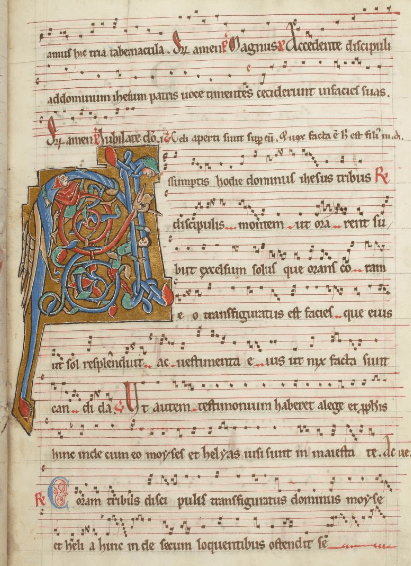 amus hic tria tabernacula. amen Magnus Accedente discipuli
addominum ihesum patris uoce timentes ceciderunt infacies suas.
amen Iubilate do. Celi aperti sunt sup facta est
ssumptis hodie dominus ihesus tribus
discipulis montem ut ora rent su
biit excelsum solus que orans co ram
e o transfiguratus est facies que eius
ut sol resplenduit ac uestimenta e ius ut nix facta sunt
can di da Ut autem testimonium haberet alege et pphis
hinc inde cum eo moyses et helyas uisi sunt in maiesta te.
Coram tribus disci pulis transfiguratus dominus moyse
et heli a hinc in de secum loquentibus ostendit se